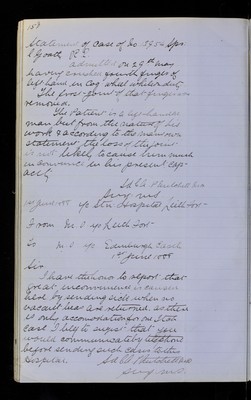 158
Statement of Case of No 3956 Spr
E Goath R.E.
admitted on 29th May
having crushed fourth finger of
left hand in Cog wheel whilst on duty
The first joint of that finger is
removed.
The Patient is a left handed
man but from the nature of his
work & according to the man's own
statement, the loss of the joint
is not likely to cause him much
inconvenience in his present cap-
acity
Surg MS
1st June 1888 i/c Stn Hospital Leith Fort
From M.O i/c Leith Fort
To M.O i/c Edinburgh Castle
1st June 1888
Sir
I have the honor to report that
great inconvenience is caused
here by sending sick when no
vacant beds are returned, as there
is only accommodation for one
case I beg to suggest that you
would communicate by telephone
before sending such cases to this
Hospital
Surg M.S.